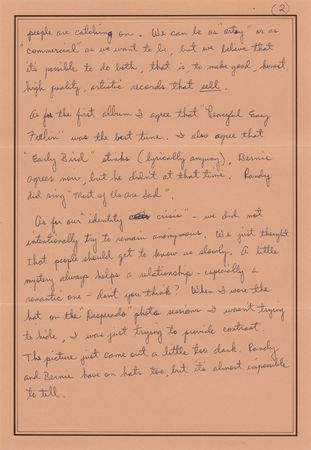 (2)
people are catching on. We can be as "artsy" or as
"commercial" as we want to be, but we believe that
it's possible to do both, that is, to make good, honest,
high quality, artistic records that sell.
As for the first album I agree that "Peaceful Easy
Feelin'" was the best tune. I also agree that
"Early Bird" stinks (lyrically anyway), Bernie
agrees now but he didn't at that time. Randy
did sing "Most of Us Are Sad".
As for our "identity crisis" - we did not
intentionally try to remain anonymous. We just thought
that people should get to know us slowly. A little
mystery always helps a relationship - especially a
romantic one - don't you think? When I wore the
hat on the "Desperado" photo sessions I wasn't trying
to hide, I was just trying to provide contrast.
The picture just came out a little too dark. Randy
and Bernie have on hats too, but it's almost impossible
to tell.